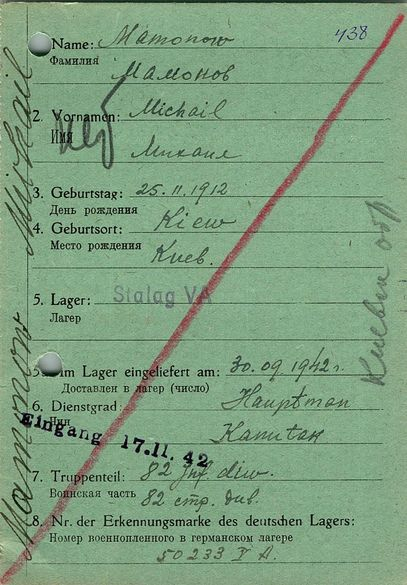 438
Name: Mamonow
Фамилия
Мамонов
2. Vornamen: Michail
Имя
Михаил
3. Geburtstag: 25.11.1912
День рождения
4. Geburtsort: Kiew
Место рождения
Киев.
5. Lager: Stalag VA
Лагер
Im Lager eingeliefert am: 30.09.1942 г.
Доставлен в лагер (число)
6. Dienstgrad: Hauptman
Чин
Капитан
Eingang 17.11.42
7. Truppenteil: 82 Inf. diw.
Воинская часть
82 стр. див.
8. Nr. der Erkennungsmarke des deutschen Lagers:
Номер военнопленного в германском лагере
50233 V A.
Mamonow Michail